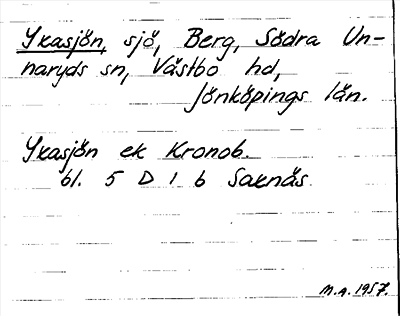 Yxasjön, sjö, Berg, Södra Un-
naryds sn, Västbo hd,
Jönköpings län.
Yxasjön ek Kronob.
bl. 5 D 1 b Saxnäs
M.A. 1957.